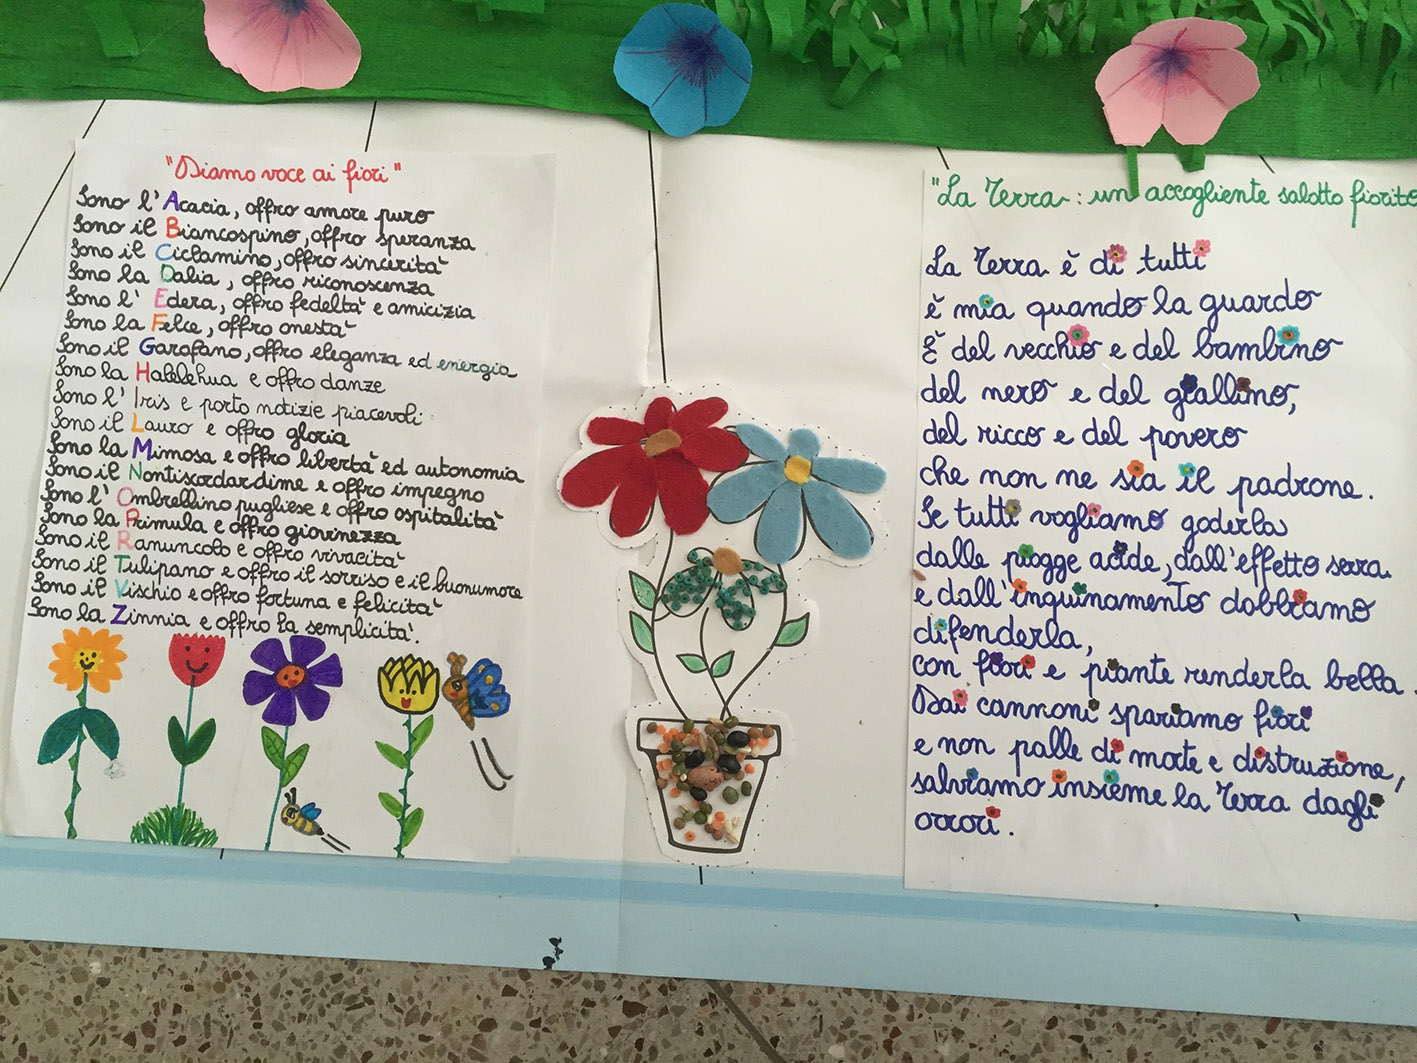 "Diamo voce ai fiori"
Sono l'Acacia, offro amore puro
Sono il Biancospino, offro speranza
Sono il Ciclamino, offro sincerità
Sono la Dalia, offro riconoscenza
Sono l'Edera, offro fedeltà e amicizia
Sono la Felce, offro onestà
Sono il Garofano, offro eleganza ed energia
Sono la Halelehua e offro danze
Sono l'Iris e porto notizie piacevoli:
Sono il Lauro e offro gloria
Sono la Mimosa e offro libertà ed autonomia
Sono il Nontiscordardime e offro impegno
Sono l'Ombrellino pugliese e offro ospitalità
Sono la Primula e offro giovinezza
Sono il Ranuncolo e offro vivacità
Sono il Tulipano e offro il sorriso e il buonumore
Sono il Vischio e offro fortuna e felicità
Sono la Zinnia e offro la semplicità.
"La Terra: un accogliente salotto fiorito
La Terra è di tutti
è mia quando la guardo
È del vecchio e del bambino
del nero e del giallino,
del ricco e del povero
che non ne sia il padrone.
Se tutti vogliamo goderla
dalle piogge acide, dall'effetto serra
e dall'inquinamento dobbiamo
difenderla,
con fiori e piante renderla bella.
Dai cannoni spariamo fiori
e non palle di morte e distruzione,
salviamo insieme la Terra dagli
orrori.